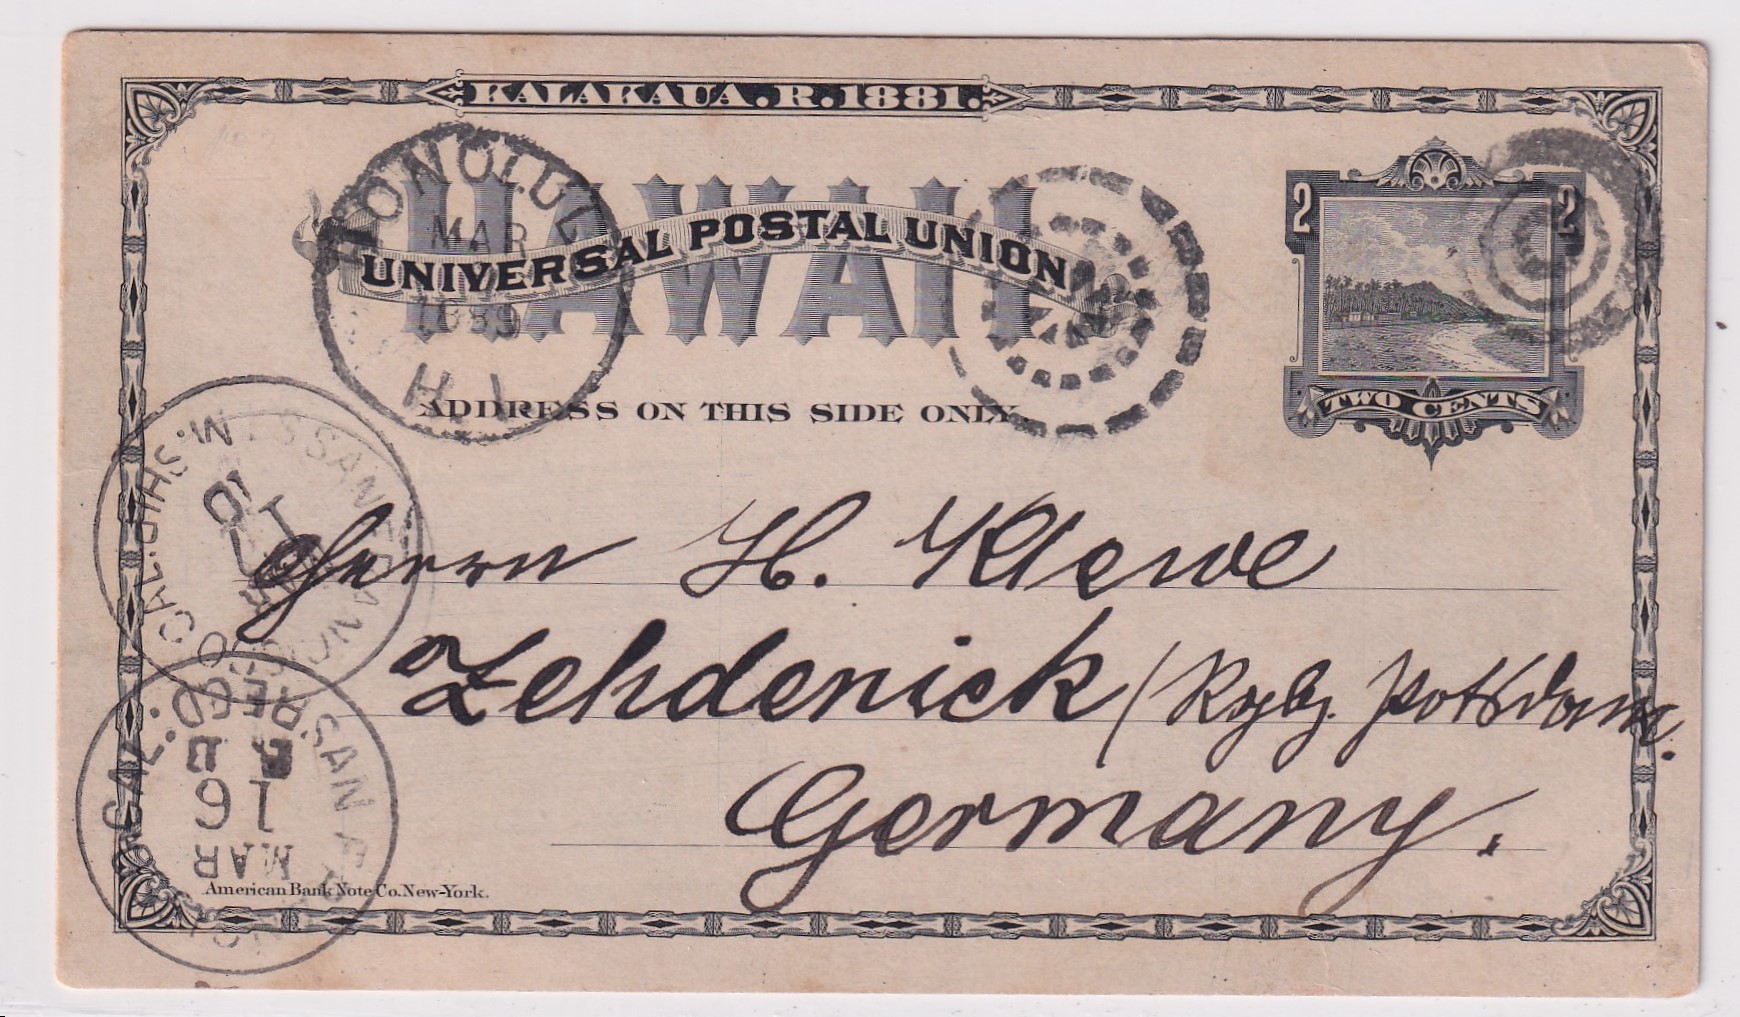 KALAKAUA.R.1881.
HAWAII
UNIVERSAL POSTAL UNION
ADDRESS ON THIS SIDE ONLY.
2 2
TWO CENTS
HONOLULU
MAR
1889
H.I.
SAN
CAL.
MAR
SAN
REC'D
16
MAR
Herrn H. Klewe
Zehdenick / Rgbz. Potsdam.
Germany.
American Bank Note Co. New-York.